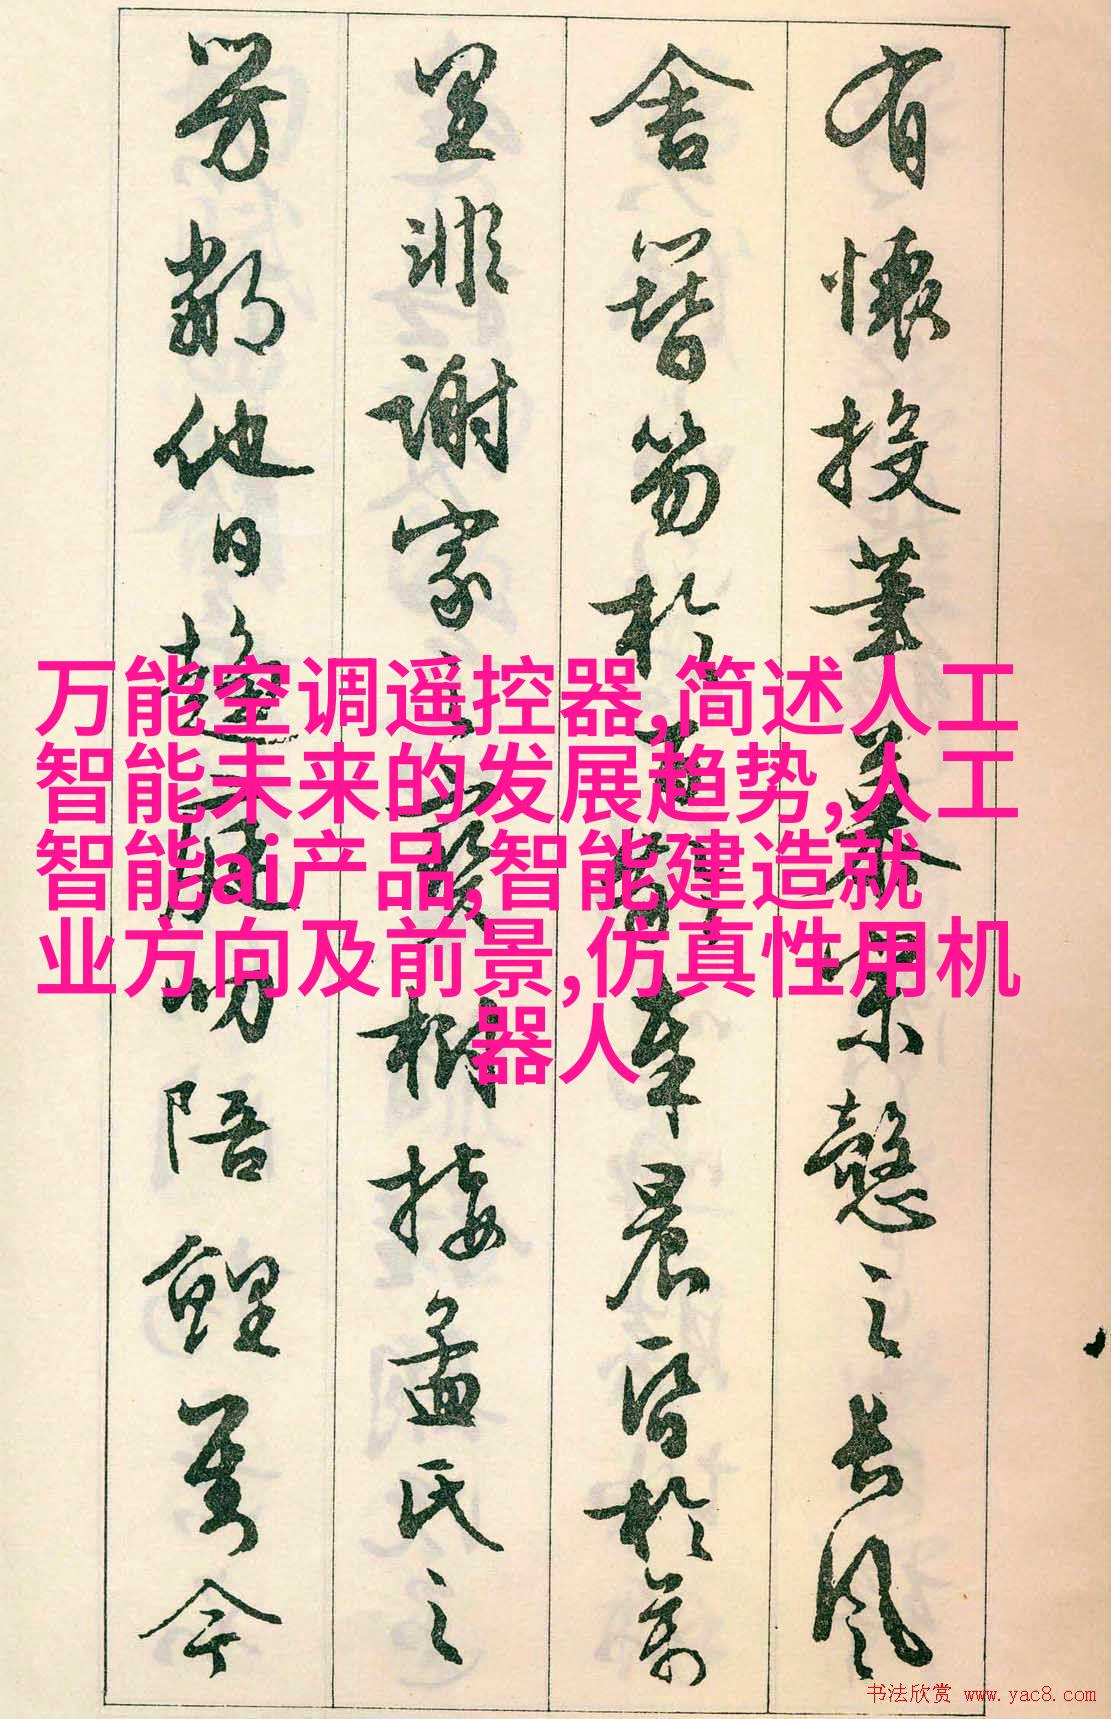 有懷投筆慕宗慤之長風
舍簪笏於百齡奉晨昏於萬
里非謝家之寶樹接孟氏之
芳鄰他日趨庭叨陪鯉對今
万能空调遥控器,简述人工
智能未来的发展趋势,人工
智能ai产品,智能建造就
业方向及前景,仿真性用机
器人
书法欣赏 www.yac8.com